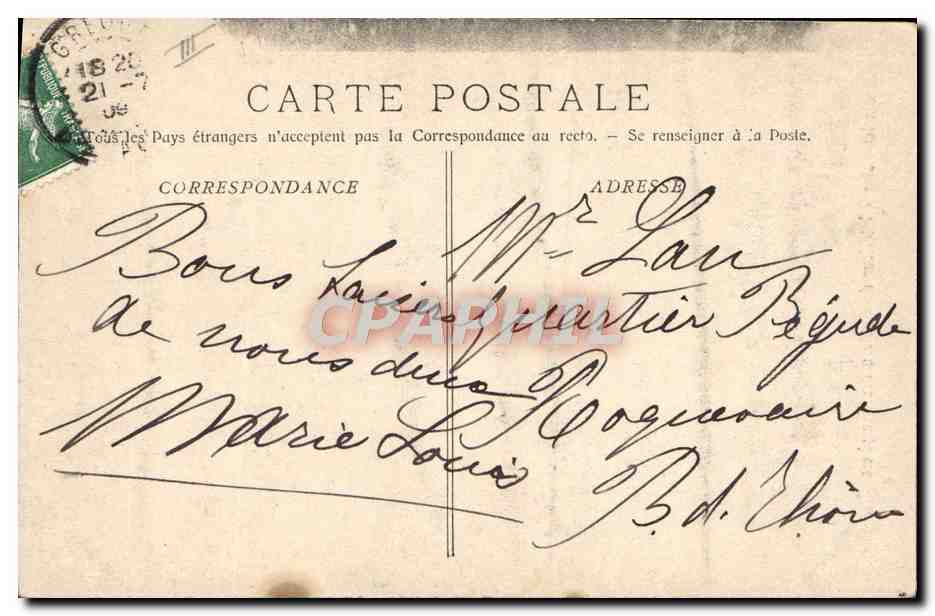 18 20
21 -7
09
RÉPUBLIQUE
CARTE POSTALE
Tous les Pays étrangers n'acceptent pas la Correspondance au recto. — Se renseigner à la Poste.
CORRESPONDANCE
Bons baisers
de nous deux
Marie Louis
ADRESSE
Mr Lau
quartier Bégude
Roquevaire
B. d. Rhône
CPAPHIL